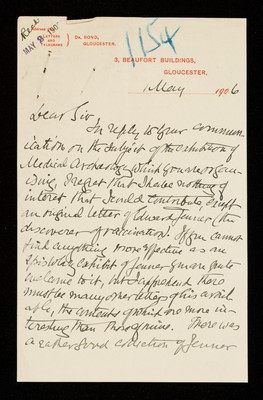 LETTERS
AND
TELEGRAMS
Dr. BOND,
GLOUCESTER.
Recd
MAY
1154
3, BEAUFORT BUILDINGS,
GLOUCESTER.
May 1906
Dear Sir
In reply to your commun-
ication on the subject of the exhibition of
Medical Archaeology which you are organ-
ising, I regret that I have nothing of
interest that I could contribute except
an original letter of Edward Jenner (the
discoverer of vaccination). If you cannot
find anything more effective as an
epistolary exhibit of Jenner you are quite
welcome to it, but I apprehend there
must be many other letters of his avail
able, the contents of which are more in-
teresting than those of mine. There was
a rather good collection of Jenner